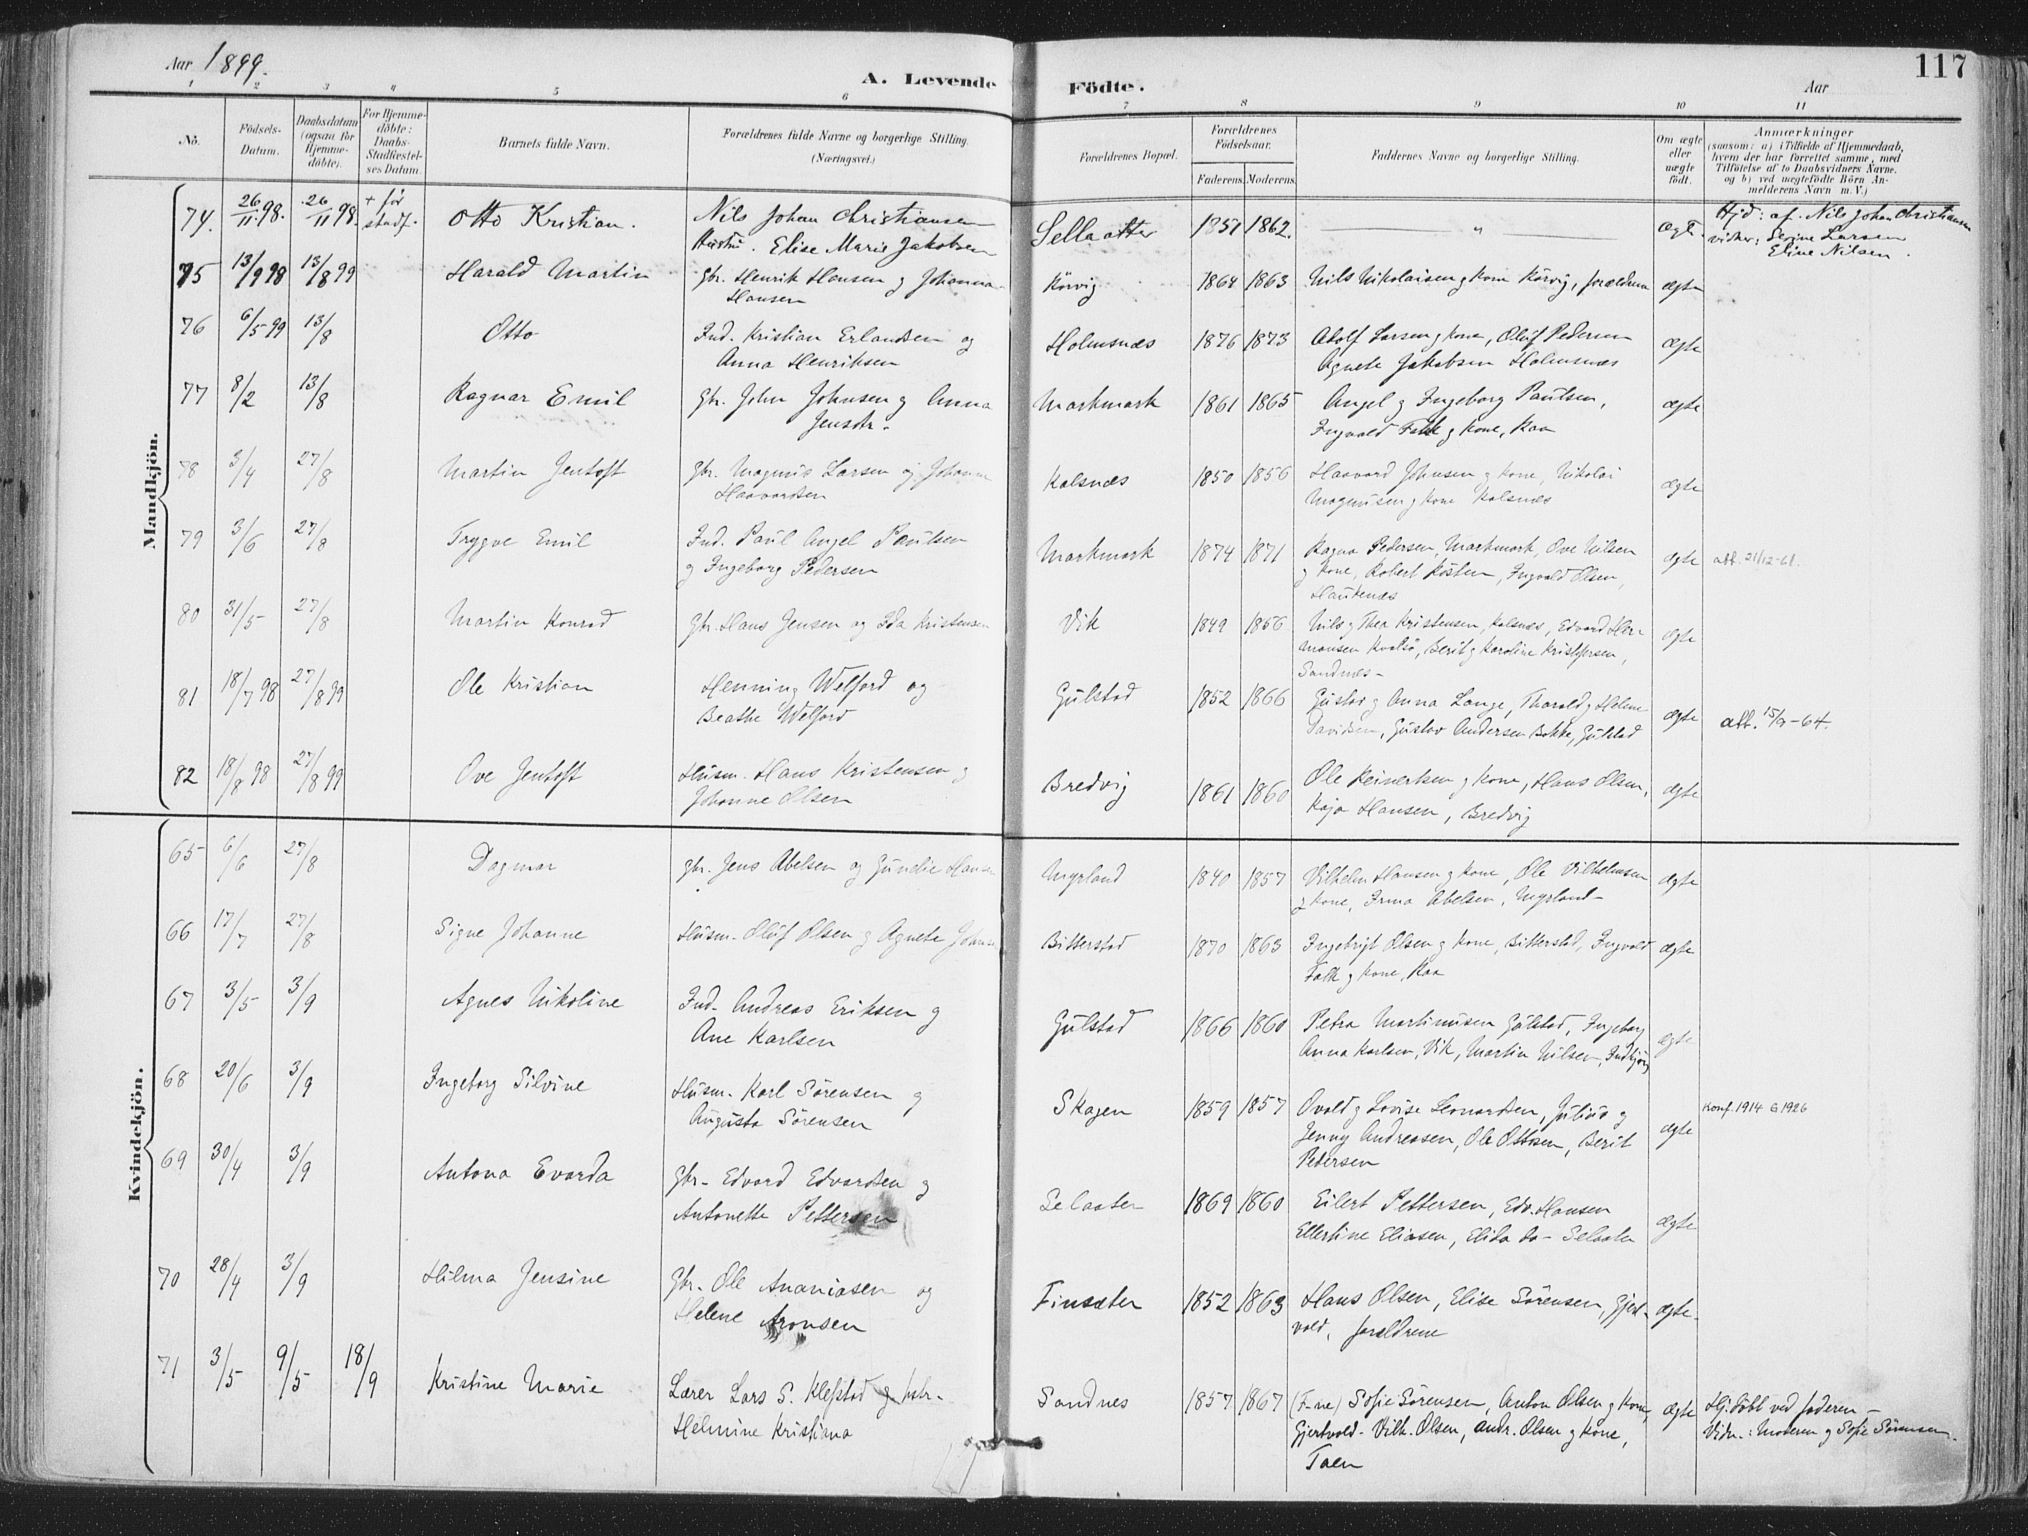 Aar 1899.
A. Levende Födte.
Aar
117
1 2 3 4 5 6 7 8 9 10 11
No.
Födsels-Datum.
Daabsdatum (ogsaa for Hjemme-döbte).
For Hjemme-döbte: Daabs-Stadfæstel-ses Datum.
Barnets fulde Navn.
Forældrenes fulde Navne og borgerlige Stilling. (Næringsvei.)
Forældrenes Bopæl.
Forældrenes Födselsaar.
Faderens. Moderens.
Faddernes Navne og borgerlige Stilling.
Om ægte eller uægte födt.
Anmærkninger
(saasom: a) i Tilfælde af Hjemmedaab,
hvem der har forrettet samme, med
Tilföielse af to Daabsvidners Navne.
og b) ved uægtefödte Börn An-
melderens Navn m. V.)
Mandkjön.
74. 26/11 98. 26/11 98. + før stadf. Otto Kristian. Nils Johan Christiansen Hustru. Elise Marie Jakobsen Sellaatter 1857 1862. " ægt. Hjd: af. Nils Johan Christiansen vidner: Serine Larsen Eline Nilsen.
75 13/9 98 13/8 99 Harald Martin Gbr. Henrik Hansen og Johanna Hansen Körvig 1864 1863 Nils Nikolaisen g kone Körvig, forældrene ægte
76 6/5 99 13/8 Otto Ind. Kristian Erlandsen og Anna Henriksen Holmsnæs 1876 1873 Adolf Larsen g kone, Oluf Pedersen Agnete Jakobsen Holmsnæs ægte
77 8/2 13/8 Ragnar Emil Gbr. John Johnsen g Anna Jensdr. Markmark 1861 1865 Angel g Ingeborg Paulsen, Ingvald Falk g kone, Kaa ægte
78 3/4 27/8 Martin Jentoft Gbr. Magnus Larsen og Johanne Haavardsen Kalsnæs 1850 1856 Haavard Johnsen g kone, Nikolai Magnusen g kone Kalsnæs ægte
79 3/6 27/8 Trygve Emil Ind. Paul Angel Paulsen og Ingeborg Pedersen Markmark 1874 1871 Ragna Pedersen, Markmark, Ove Nilsen g kone, Robert Kösten, Ingvald Olsen, ægte att. 21/12-61.
80 31/5 27/8 Martin Konrad Gbr. Hans Jensen og Ida Kristensen Vik 1849 1856 Nils g Thea Kristensen, Kalsnæs, Edvard Her-mansen Kvalsö, Berit g Karoline Kristofersen, Sandnes- ægte
81 18/7 98 27/8 99 Ole Kristian Henning Welford og Beathe Welford Gulstad 1852 1866 Gustav g Anna Lange, Tharald g Helene Davidsen, Gustav Andersen Bakke, Gulstad ægte att. 15/9-64.
82 18/8 98 27/8 99 Ove Jentoft Husm. Hans Kristensen g Johanne Olsen Bredvig 1861 1860 Ole Reinertsen g kone, Hans Olsen, Kaja Hansen, Bredvig ægte
Kvindekjön.
65 6/6 27/8 Dagmar Gbr. Jens Abelsen og Gundie Hansen Myrland 1840 1857 Vilhelm Hansen g kone, Ole Vilhelmsen g kone, Irma Abelsen, Myrland- ægte
66 17/7 27/8 Signe Johanne Husm. Oluf Olsen g Agneta Bitterstad 1870 1863 Ingebrigt Olsen g kone, Bitterstad, Ingvald Falk g kone, Kaa ægte
67 3/5 3/9 Agnes Nikoline Ind. Andreas Eriksen g Ane Karlsen Gulstad 1866 1860 Petra Martinusen Gulstad, Ingeborg Anna Karlsen, Vik, Martin Nilsen, ægte
68 20/6 3/9 Ingeborg Silvine Husm. Karl Sörensen g Augusta Sörensen Skagen 1859 1857 Ovald g Lovise Leonardsen, Julius g Jenny Andreasen, Ole Ottosen, Berit Pedersen ægte Konf. 1914 G 1926
69 30/4 3/9 Antona Evarda Gbr. Edvard Edvardsen g Antonette Pettersen Selaater 1869 1860 Eilert Pettersen, Edv. Hansen Ellertine Eliasen, Elida do- Selaater ægte
70 28/4 3/9 Hilma Jensine Gbr. Ole Ananiasen og Helene Aronsen Finsæter 1852 1863 Hans Olsen, Elise Sörensen, Gjert-vold, forældrene ægte.
71 3/5 9/5 18/9 Kristine Marie Lærer Lars S. Klefstad g hstr. Helmine Kristiana Sandnes 1857 1867 (F-ne) Sofie Sörensen, Anton Olsen g kone, Gjertvold- Vilh. Olsen, Andr. Olsen g kone, Taen ægte Hj. döbt ved faderen- Vidn.: Moderen g Sofie Sörensen.